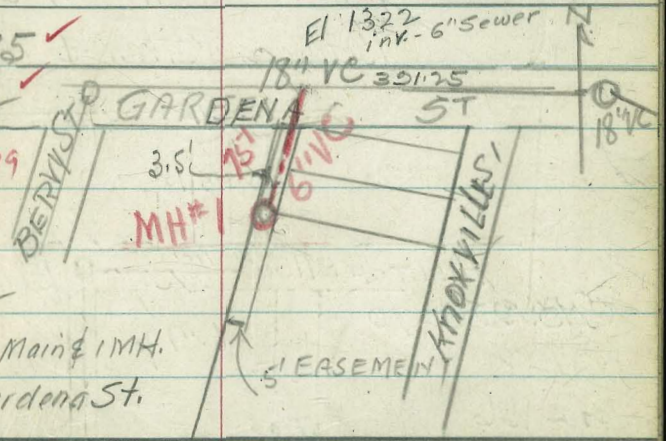 El 1322
inv.- 6" Sewer
N
5
18" VC 391.25
GARDENA ST
18" VC
BERVY ST
3.5'
75'
6" VC
MH#1
KNOXVILLE S
5' EASEMEN
Main & 1 MH.
rdena St.